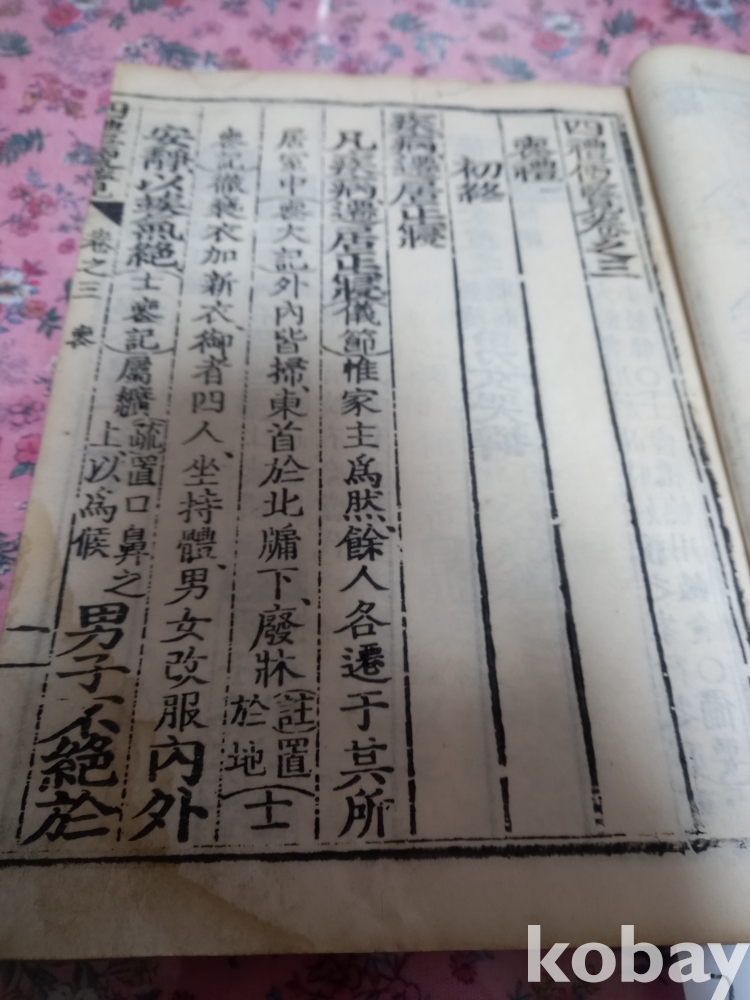 四禮備要卷之三
喪禮二
初終
疾病遷居正寢
凡疾病遷居正寢(儀節)惟家主爲然、餘人各遷于其所
居室中(喪大記)外內皆掃、東首於北牖下、廢牀(註)置於地(士
喪記)徹褻衣加新衣、御者四人、坐持體、男女改服內外
安靜以俟氣絶(士喪記)屬纊(疏)置口鼻之上、以爲候男子不絶於
卷之三 喪
一
kobay